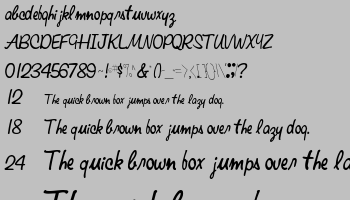 abcdefghijklmnopqrstuvwxyz
ABCDEFGHIJKLMNOPQRSTUVWXYZ
0123456789
12 The quick brown box jumps over the lazy dog.
18 The quick brown box jumps over the lazy dog.
24 The quick brown box jumps over the la